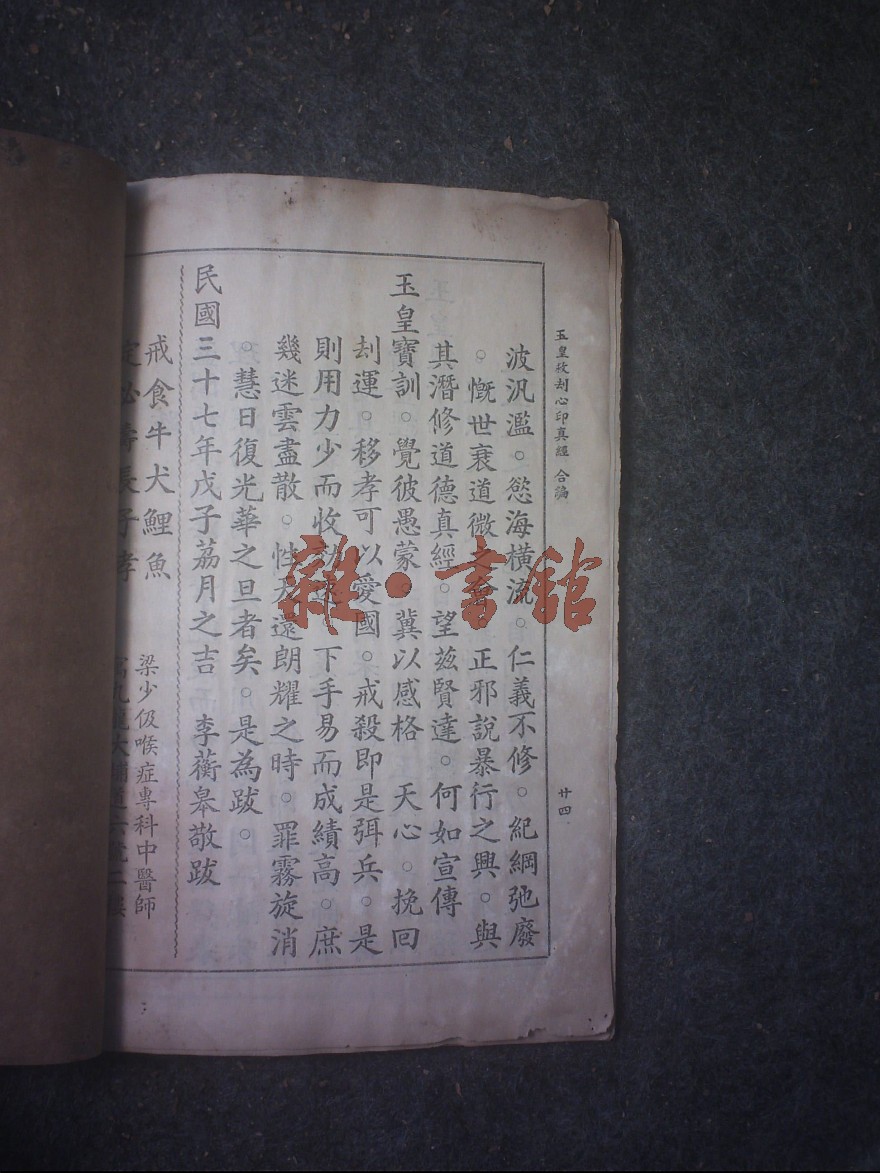 玉皇救刦心印真經 合編
廿四
波汎濫。慾海橫流。仁義不修。紀綱弛廢
。慨世衰道微之會。正邪說暴行之興。與
其潛修道德真經。望茲賢達。何如宣傳
玉皇寶訓。覺彼愚蒙。冀以感格 天心。挽回
刦運。移孝可以愛國。戒殺即是弭兵。是
則用力少而收。下手易而成績高。庶
幾迷雲盡散。性天還朗耀之時。罪霧旋消
。慧日復光華之旦者矣。是為跋。
民國三十七年戊子荔月之吉 李蘅皋敬跋
戒食牛犬鯉魚 梁少伋喉症專科中醫師
雜·書館